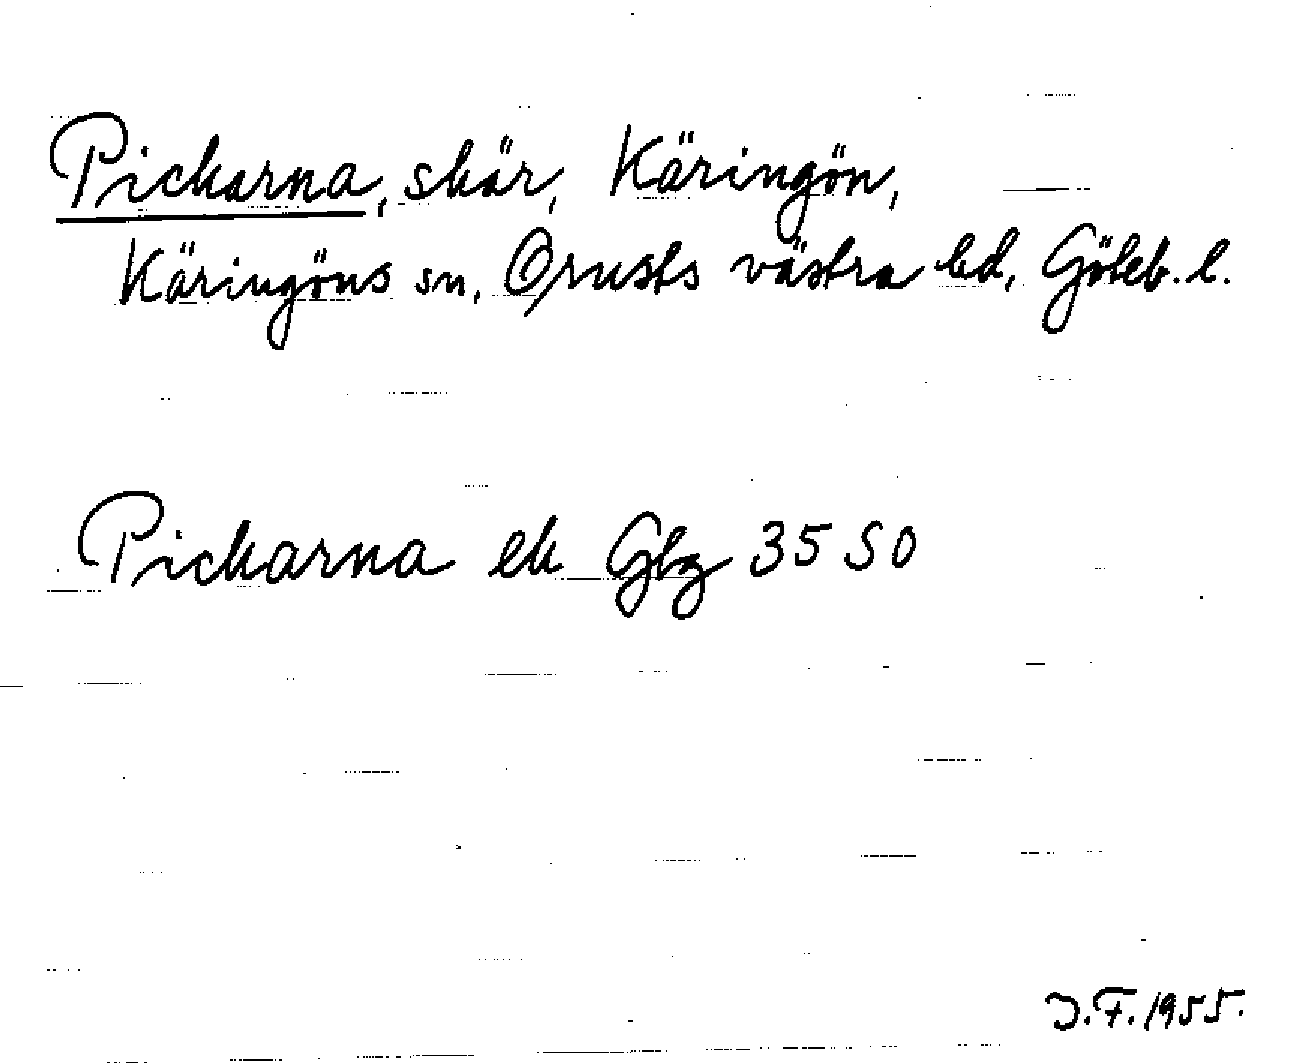 Pickarna, skär, Käringön,
Käringöns sn, Orusts västra hd, Göteb. l.
Pickarna ek Gbg 35 SO
J.F. 1955.